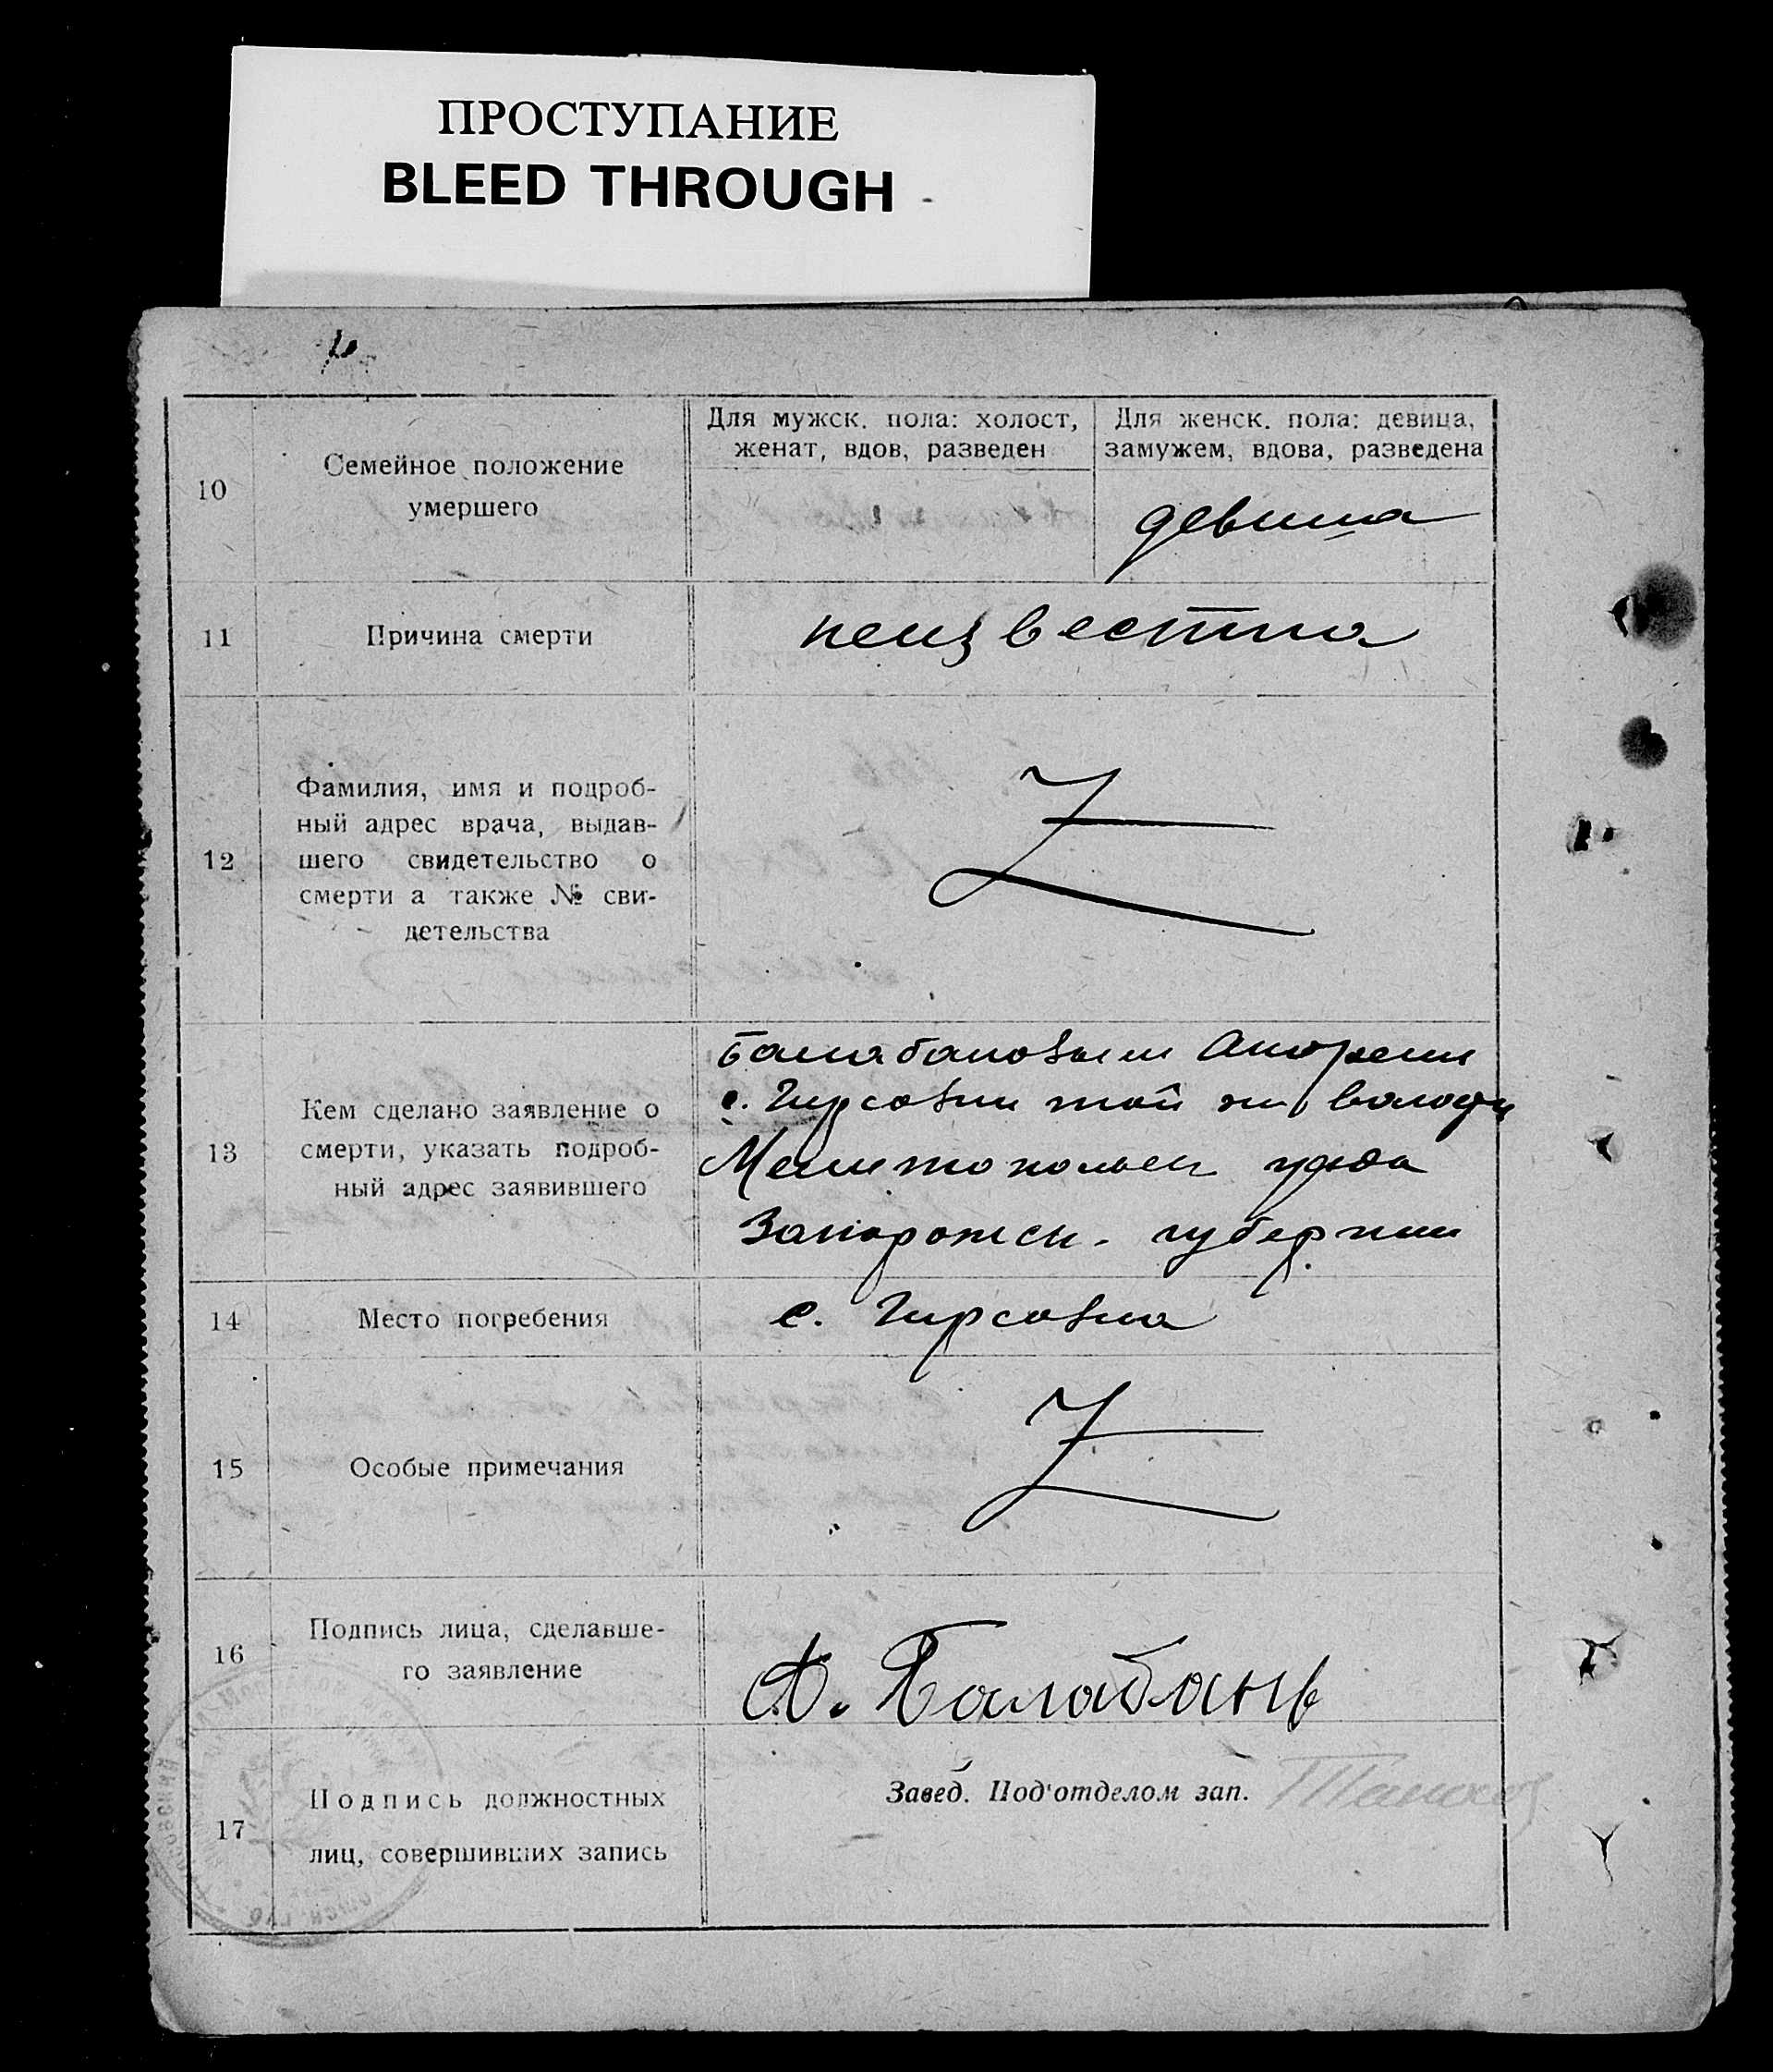 ПРОСТУПАНИЕ
BLEED THROUGH
10
Семейное положение
умершего
Для мужск. пола: холост,
женат, вдов, разведен
Для женск. пола: девица,
замужем, вдова, разведена
девица
11
Причина смерти
неизвестна
12
Фамилия, имя и подроб-
ный адрес врача, выдав-
шего свидетельство о
смерти а также № сви-
детельства
Z
13
Кем сделано заявление о
смерти, указать подроб-
ный адрес заявившего
Балабановым Андреем
с. Гирсовки той же волости
Мелитопольск уезда
Запорожск. губернии
14
Место погребения
с. Гирсовка
15
Особые примечания
Z
16
Подпись лица, сделавше-
го заявление
А. Балабанъ
17
Подпись должностных
лиц, совершивших запись
Завед. Под'отделом зап.